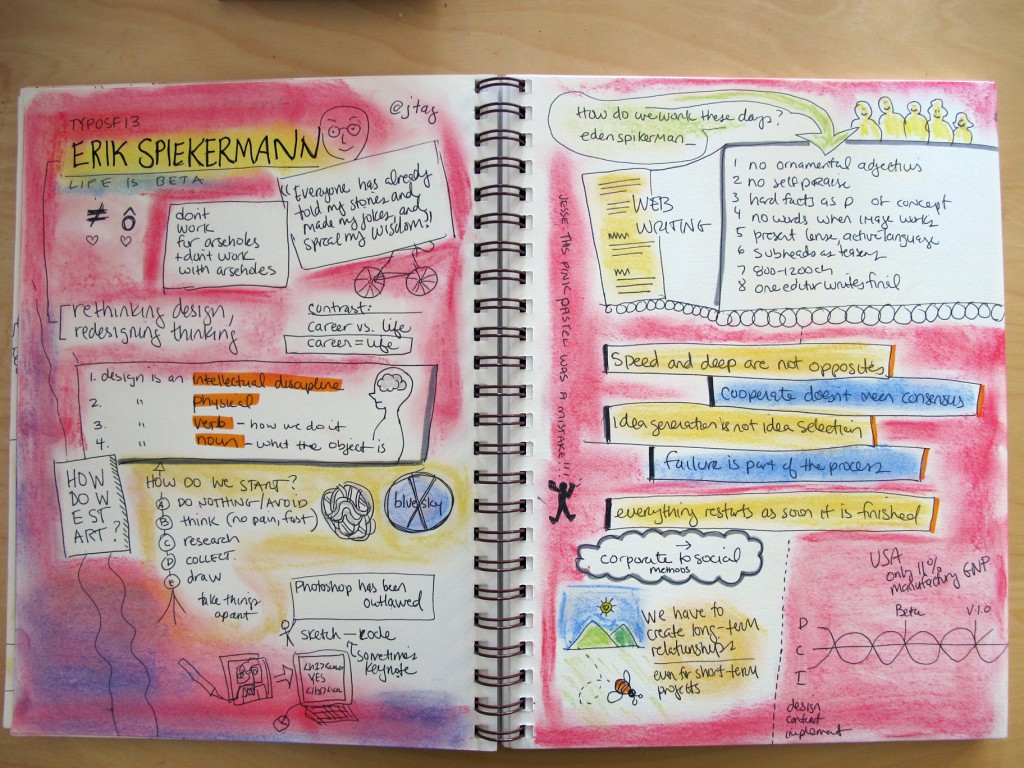 TYPOSF13
ERIK SPIEKERMANN
LIFE IS BETA
@jtag
≠ ô
♡ ♡
don't
work
for arseholes
+ don't work
with arseholes
"Everyone has already
told my stories and
made my jokes, and
spread my wisdom?!
rethinking design,
redesigning thinking
contrast:
career vs. life
career = life
1. design is an intellectual discipline
2. " physical
3. " verb - how we do it
4. " noun - what the object is
HOW
DO W
E ST
ART ?
HOW DO WE START?
A DO NOTHING/AVOID
B think (no pain, fast)
C research
D COLLECT
E draw
take things
apart
blue sky
Photoshop has been
outlawed
sketch - code
sometimes
keynote
YES
JESSE: THIS PINK PASTEL WAS A MISTAKE!!!
How do we work these days?
edenspiekerman_
WEB
WRITING
1 no ornamental adjectives
2 no self praise
3 hard facts as p of concept
4 no words when image works
5 present tense, active language
6 subheads as teasers
7 800-1200 ch
8 one editor writes final
Speed and deep are not opposites
Cooperate doesn't mean consensus
Idea generation is not idea selection
Failure is part of the process
everything restarts as soon it is finished
corporate → to social
methods
We have to
create long-term
relationships
even for short-term
projects
USA
only 11%
manufacturing GNP
Beta V 1.0
D
C
I
design
content
implement